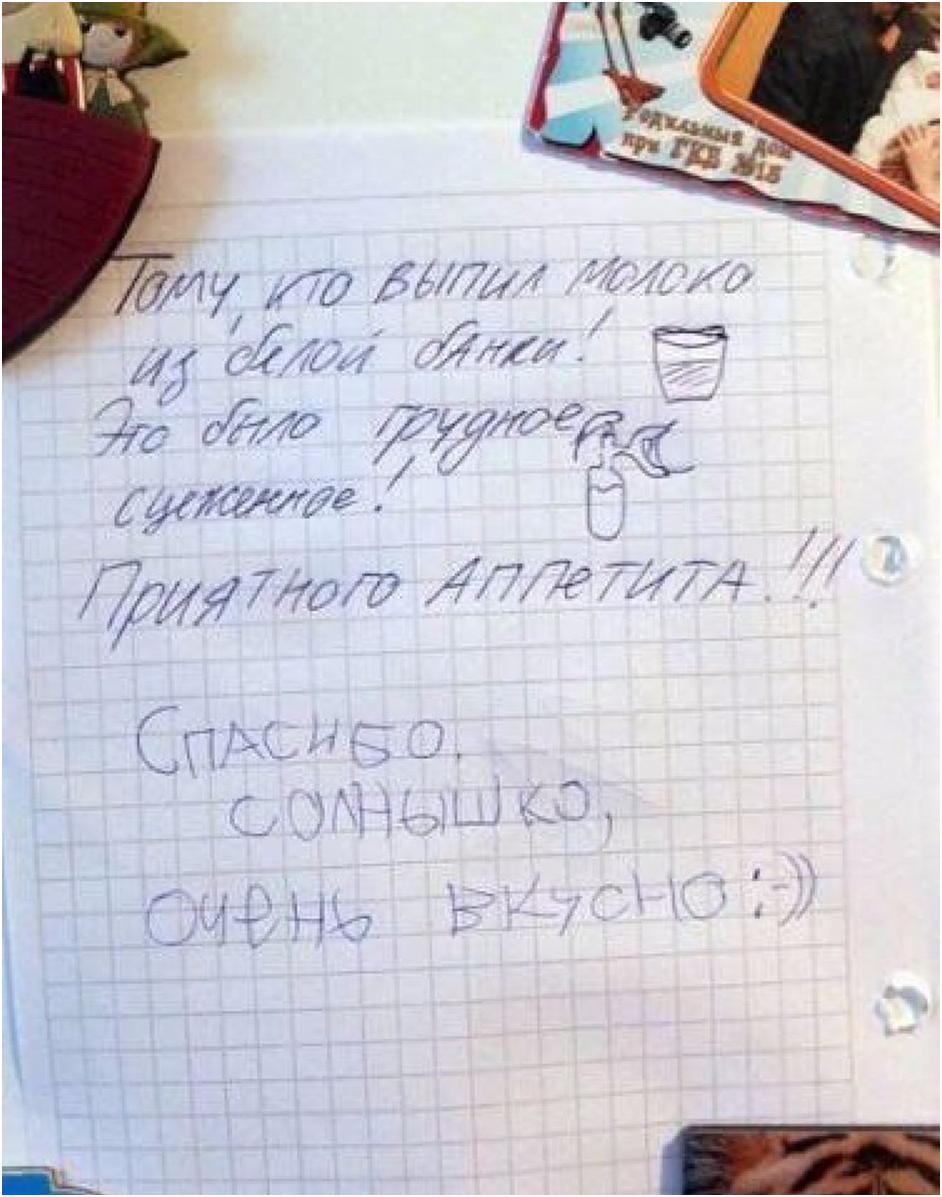 Родильный дом
при ГКБ №15
Тому, кто выпил молоко
из белой банки!
Это было грудное
сцеженное!
Приятного АППЕТИТА!!!
Спасибо,
солнышко,
Очень вкусно :-))